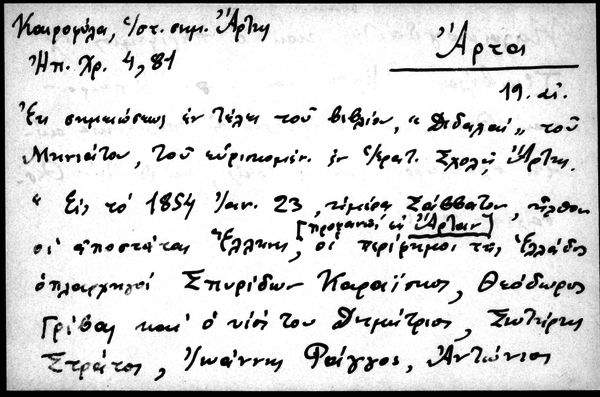 Καιροφύλα, Ἱστ. σημ. Ἄρτης
Ἠπ. Χρ. 4, 81
Ἄρτα
19. αἰ.
Ἐκ σημειώσεως ἐν τέλει τοῦ βιβλίου, "Διδαχαὶ" τοῦ
Μηνιάτου, τοῦ εὑρισκομέν. ἐν Ἑκρατ. Σχολῇ Ἄρτης.
" Εἰς τὸ 1854 Ἰαν. 23, ἡμέρα Σάββατον, ἦλθον
[προφανῶς εἰς Ἄρταν]
οἱ ἀποστάται Ἕλληνες, οἱ περίφημοι τῆς Ἑλλάδος
ὁπλαρχηγοὶ Σπυρίδων Καραΐσκος, Θεόδωρος
Γρίβας καὶ ὁ υἱός του Δημήτριος, Σωτήριος
Στράτος, Ἰωάννης Ράγγος, Ἀντώνιος